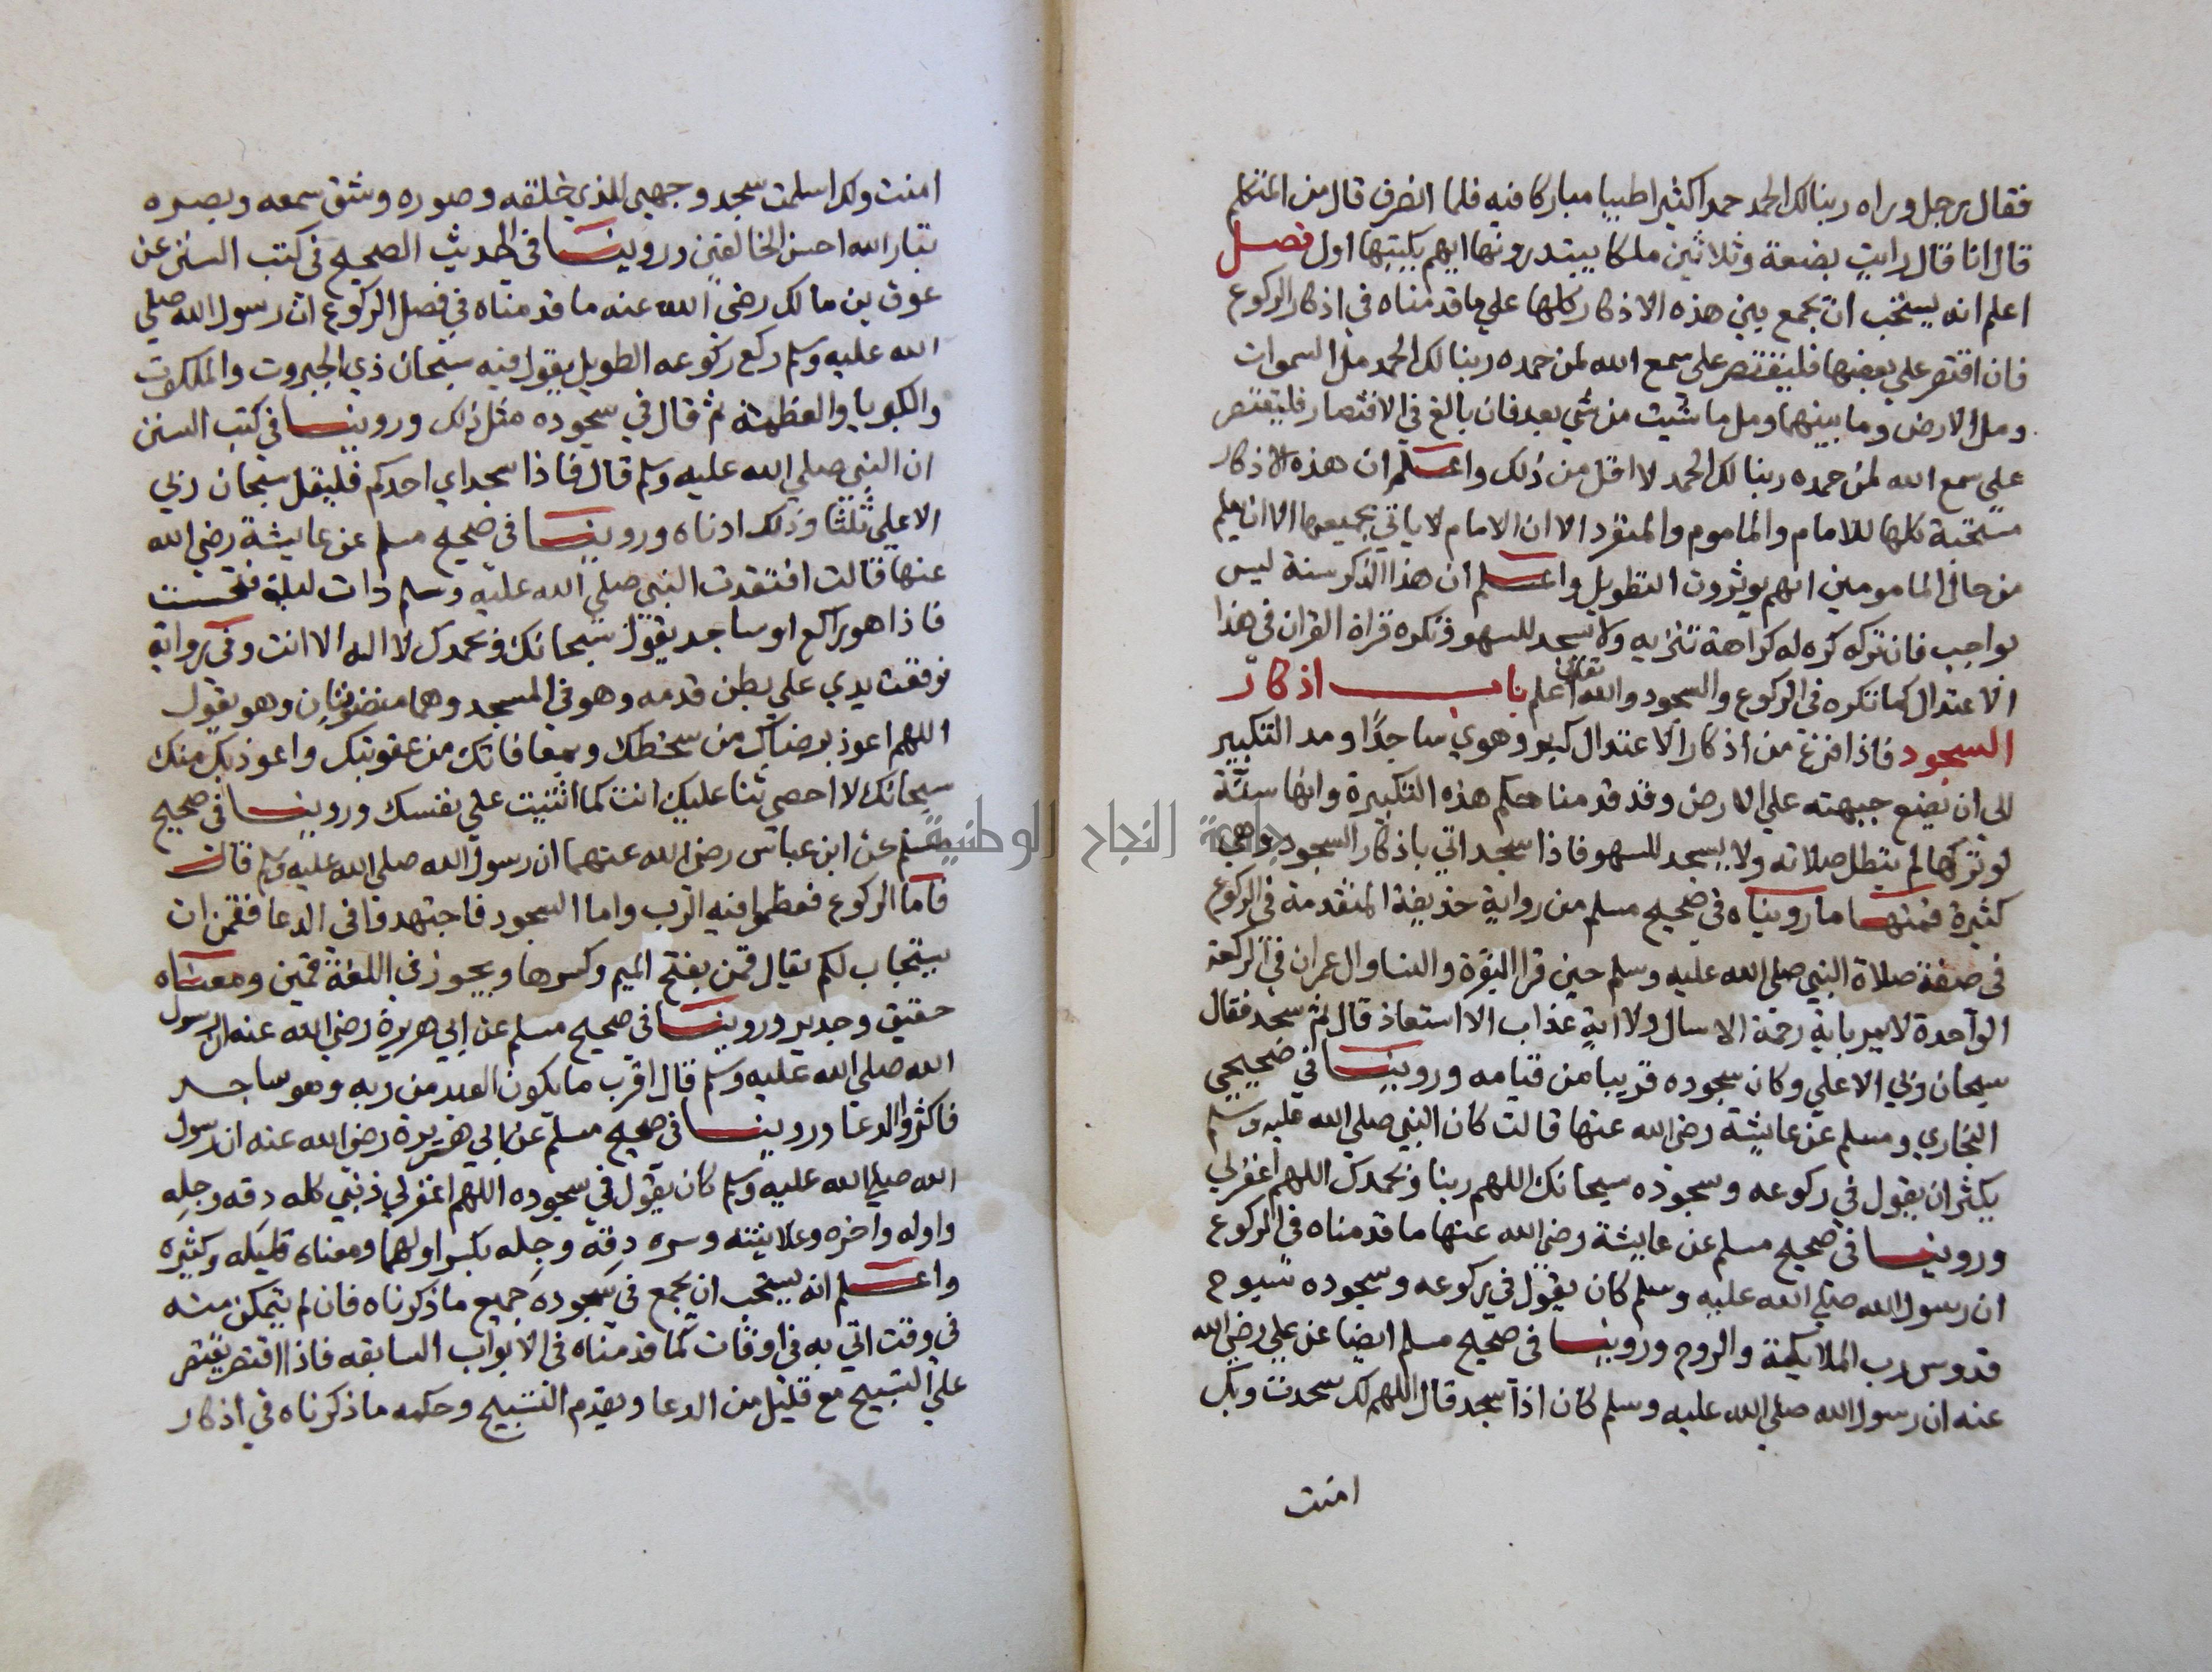 فقال رجل وراه ربنا لك الحمد حمدا كثيرا طيبا مباركا فيه فلما انصرف قال من المتكلم
قال انا قال رايت بضعة وثلاثين ملكا يبتدرونها ايهم يكتبها اول فصل
اعلم انه يستحب ان يجمع بين هذه الاذكار كلها علي ما قدمناه في اذكار الركوع
فان اقتصر علي بعضها فليقتصر علي سمع الله لمن حمده ربنا لك الحمد مل السموات
ومل الارض وما بينهما ومل ما شيت من شي بعد فان بالغ في الاقتصار فليقتصر
علي سمع الله لمن حمده ربنا لك الحمد لا اقل من ذلك واعلم ان هذه الاذكار
مستحبة كلها للامام والماموم والمنفرد الا ان الامام لا ياتي بجميعها الا ان يعلم
من حال المامومين انهم يوثرون التطويل واعلم ان هذا الذكر سنة ليس
بواجب فان تركه كره له كراهة تنزيه ولا يسجد للسهو وتكره قراة القران في هذا
الاعتدال كما تكره في الركوع والسجود والله تعالى اعلم باب اذكار
السجود فاذا فرغ من اذكار الاعتدال كبر وهوي ساجدًا ومد التكبير
الي ان يضع جبهته علي الارض وقد قدمنا حكم هذه التكبيرة وانها سنّة
لو تركها لم تبطل صلاته ولا يسجد للسهو فاذا سجد اتي باذكار السجود وهي
كثيرة فمنها ما رويناه في صحيح مسلم من رواية حذيفة المتقدمة في الركوع
في صفة صلاة النبي صلي الله عليه وسلم حين قرا البقرة والنسا وال عمران في الركعة
الواحدة لا يمر باية رحمة الا سال ولا اية عذاب الا استعاذ قال ثم سجد فقال
سبحان ربي الاعلي وكان سجوده قريبا من قيامه وروينا في صحيحي
البخاري ومسلم عن عايشة رضي الله عنها قالت كان النبي صلي الله عليه وسلم
يكثر ان يقول في ركوعه وسجوده سبحانك اللهم ربنا وبحمدك اللهم اغفر لي
وروينا في صحيح مسلم عن عايشة رضي الله عنها ما قدمناه في الركوع
ان رسول الله صلي الله عليه وسلم كان يقول في ركوعه وسجوده سبوح
قدوس رب الملايكة والروح وروينا في صحيح مسلم ايضا عن علي رضي الله
عنه ان رسول الله صلي الله عليه وسلم كان اذا سجد قال اللهم لك سجدت وبك
امنت
امنت ولك اسلمت سجد وجهي للذي خلقه وصوره وشق سمعه وبصره
تبارك الله احسن الخالقين وروينا في الحديث الصحيح في كتب السنن عن
عوف بن مالك رضي الله عنه ما قدمناه في فصل الركوع ان رسول الله صلي
الله عليه وسلم ركع ركوعه الطويل يقول فيه سبحان ذي الجبروت والملكوت
والكبريا والعظمة ثم قال في سجوده مثل ذلك وروينا في كتب السنن
ان النبي صلي الله عليه وسلم قال فاذا سجد اي احدكم فليقل سبحان ربي
الاعلي ثلثا وذلك ادناه وروينا في صحيح مسلم عن عايشة رضي الله
عنها قالت افتقدت النبي صلي الله عليه وسلم ذات ليلة فتحسست
فاذا هو راكع او ساجد يقول سبحانك وبحمدك لا اله الا انت وفي رواية
فوقعت يدي علي بطن قدمه وهو في المسجد وهما منصوبتان وهو يقول
اللهم اعوذ برضاك من سخطك وبمعافاتك من عقوبتك واعوذ بك منك
سبحانك لا احصي ثنا عليك انت كما اثنيت علي نفسك وروينا في صحيح
مسلم عن ابن عباس رضي الله عنهما ان رسول الله صلي الله عليه وسلم قال
فاما الركوع فعظموا فيه الرب واما السجود فاجتهدوا في الدعا فقمن ان
يستجاب لكم يقال قمن بفتح الميم وكسرها ويجوز في اللغة قمين ومعناه
حقيق وجدير وروينا في صحيح مسلم عن ابي هريرة رضي الله عنه ان رسول
الله صلي الله عليه وسلم قال اقرب ما يكون العبد من ربه وهو ساجد
فاكثروا الدعا وروينا في صحيح مسلم عن ابي هريرة رضي الله عنه ان رسول
الله صلي الله عليه وسلم كان يقول في سجوده اللهم اغفر لي ذنبي كله دقه وجله
واوله واخره وعلانيته وسره دِقه وجِله بكسر اولهما ومعناه قليله وكثيره
واعلم انه يستحب ان يجمع في سجوده جميع ما ذكرناه فان لم يتمكن منه
في وقت اتي به في اوقات كما قدمناه في الابواب السابقه فاذا اقتصر يقتصر
علي التسبيح مع قليل من الدعا ويقدم التسبيح وحكمه ما ذكرناه في اذكار
جامعة النجاح الوطنية